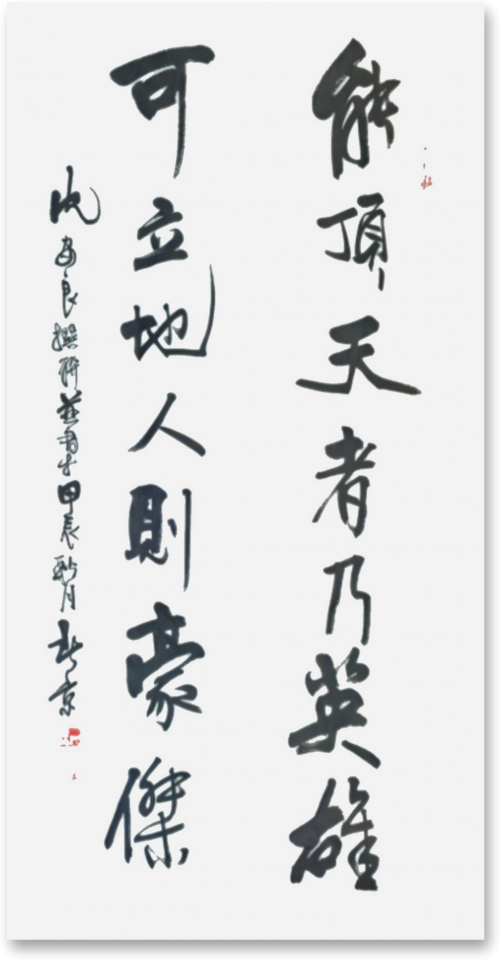 能頂天者乃英雄
可立地人則豪傑
安良撰聯并書于甲辰秋月北京